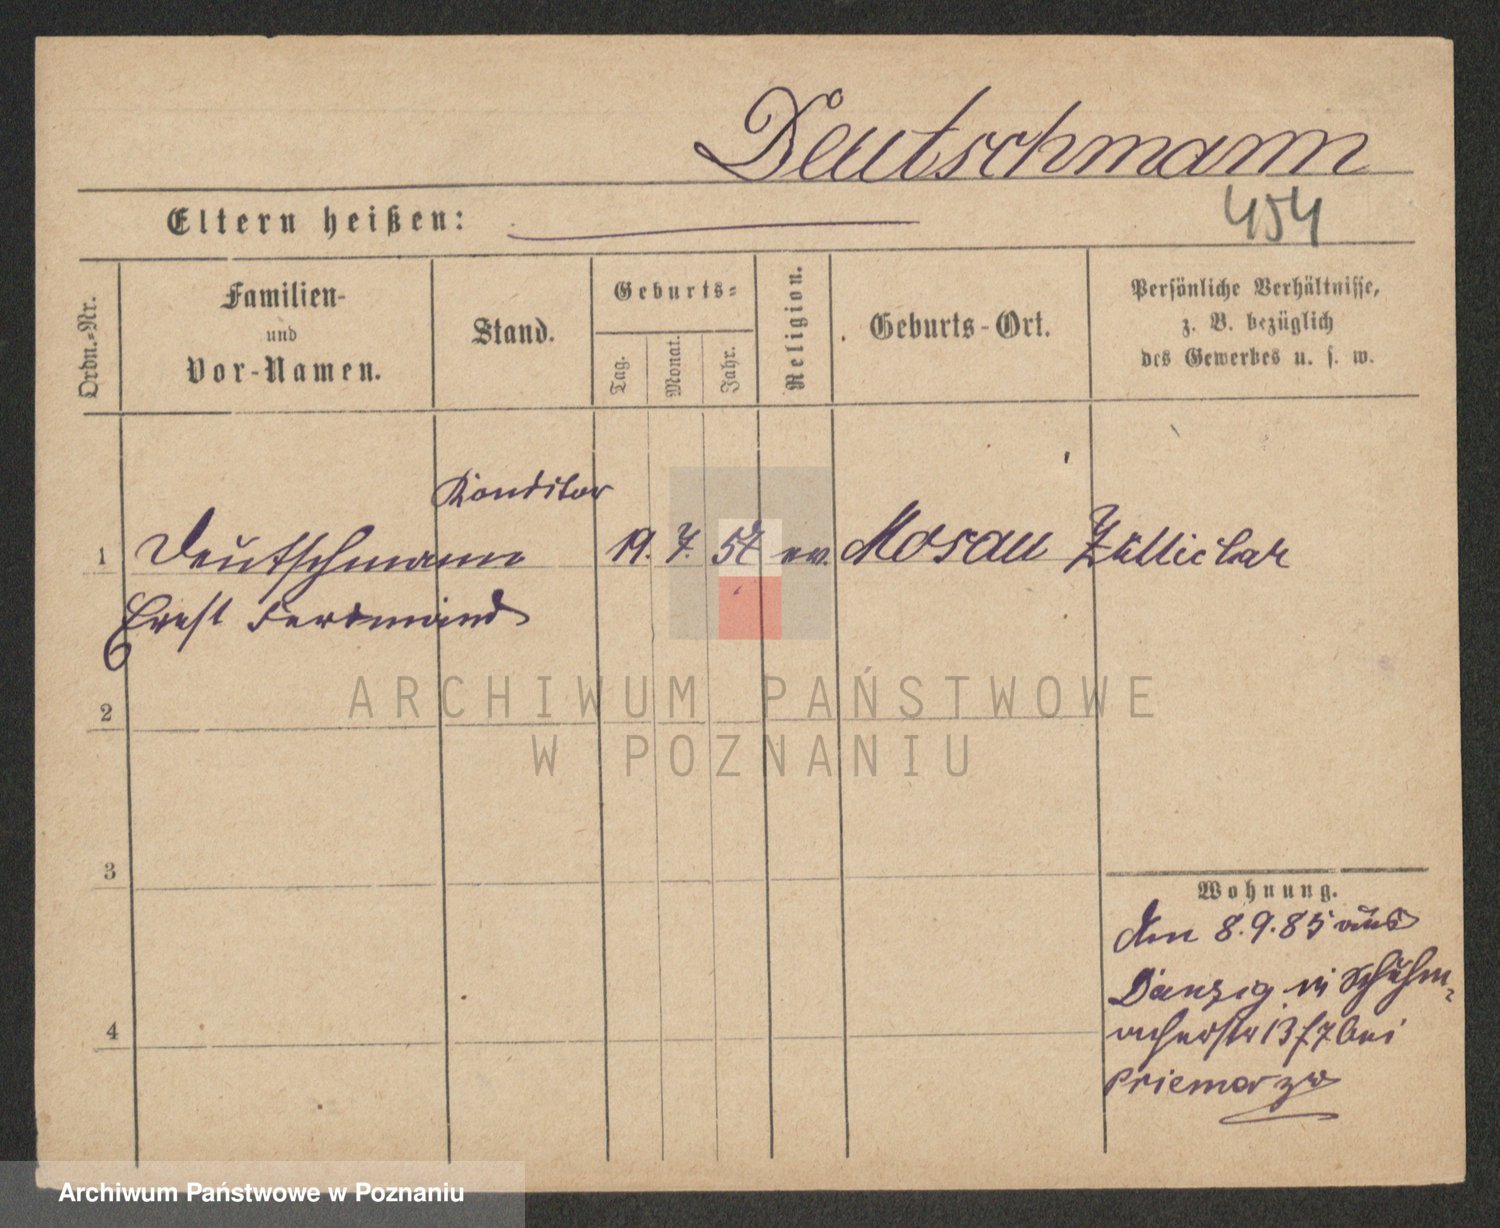 Deutschmann
Eltern heißen:
454
Ordn.-Nr.
Familien-
und
Vor-Namen.
Stand.
Geburts-
Tag.
Monat.
Jahr.
Religion.
Geburts-Ort.
Persönliche Verhältnisse,
z. B. bezüglich
des Gewerbes u. s. w.
Konditor
1 Deutschmann 19. 7. 57 ev. Mosau Züllichau
Ernst Ferdinand
2
ARCHIWUM PAŃSTWOWE
W POZNANIU
3
Wohnung.
8.9.85 aus
Danzig in Schuhm-
acherstr 13 bei
4
Archiwum Państwowe w Poznaniu